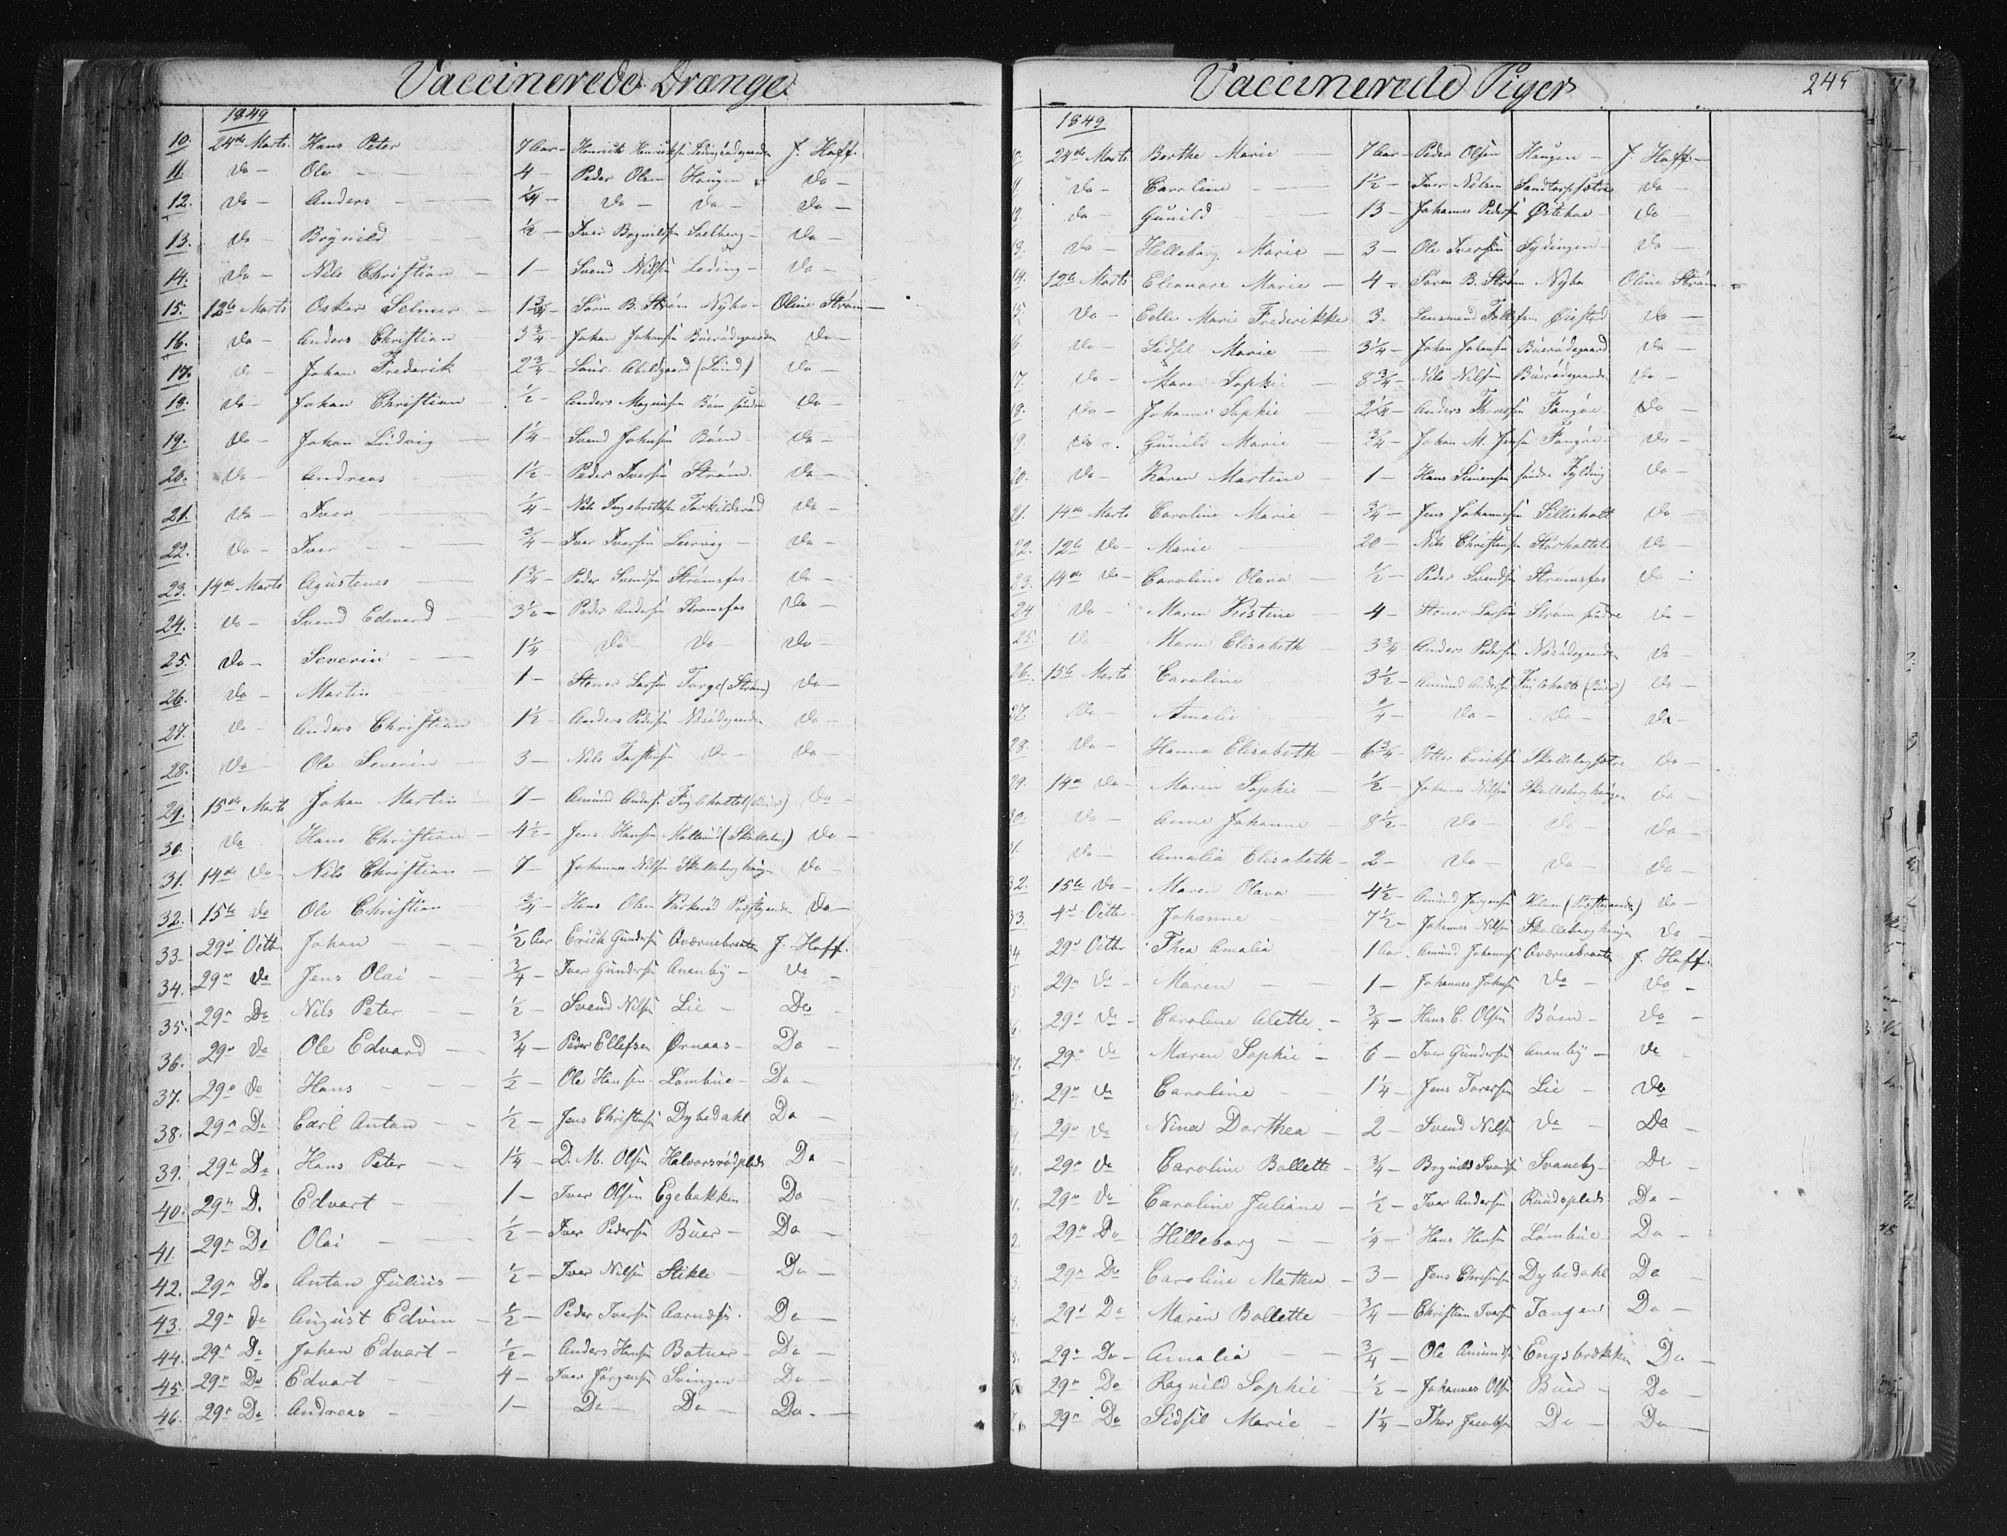 Vaccinerede Drænge
1849
10. 24de Marts Hans Peter 7 Aar - Henrik Henriksen J. Hoff.
11. do - Ole - 4 - Peder Olsen Haugen do -
12. do - Anders - 1/4 - do - do - do -
13. do - Brynild 1/2 - Iver Brynildsen Solberg - do -
14. do - Nils Christian - 1 - Svend Nilsen Leding - do -
15. 12te Marts Oskar Selmer - 1 3/4 - Sören B. Ström Nybo - Oline Ström -
16. do - Anders Christian 3 3/4 - Johan Johansen Buerødgaarden do -
17. do - Johan Frederik - 2 3/4 - Laur. Abildgaard (Lund) do -
18. do - Johan Christian - 1/2 - Anders Magnusen Böen søndre do -
19. do - Johan Ludvig - 1 1/4 - Svend Johnsen Böen - do -
20. do - Andreas 1 1/2 - Peder Iversen Ström. do -
21. do - Iver 1/4 - Nils Ingebretsen Torkilderød do -
22. do - Iver - 3/4 - Iver Iversen Leervig - do -
23. 14de Marts Agustenus 1 3/4 - Peder Svendsen Strømsfos - do -
24. do - Svend Edevard - 3 1/2 - Peder Andersen Strømsfos do -
25. do - Severin - 1 1/4 - do - do - do -
26. do - Martin 1 - Stener Larsen Torge (Strøm) do -
27. do - Anders Christian 1 1/2 - Anders Pedersen do -
28. do - Ole Severin - 3 - Nils Torstensen do - do -
29. 15de Marts Johan Martin - 7 - Amund Andersen Fuglholtet do -
30. do Hans Christian - 4 1/2 - Jens Hansen do -
31. 14de do - Nils Christian - 7 - Johannes Nilsen Skallebergshaugen do -
32. 15de do Ole Christian 3/4 - Hans Olsen do -
33. 29d Octbr Johan - 1/2 Aar Erich Gundersen Qværnebraaten J. Hoff.
34. 29n do Jens Olai - 3/4 - Iver Gundersen Ananby - do -
35. 29n Do Nils Peter - 1/2 - Svend Nilsen Lie - Do -
36. 29n do Ole Edvard - 3/4 - Peder Ellefsen Ørnaas - Do -
37. 29n do Hans - 1/2 - Ole Hansen Lömbue - Do -
38. 29n Do Carl Anton - 1/2 - Jens Christensen Dybedahl Do -
39. 29n Do - Hans Peter - 1 1/4 - D. M. Olsen Halvorsrødplads Do -
40. 29n D. Edvart - 1 - Iver Olsen Egebakken Do
41. 29n Do Olai - 1/2 - Iver Pedersen Buer - Do -
42. 29n Do Anton Julius - 1/2 - Iver Nilsen Stikle - Do -
43. 29n do August Edvin - 1/2 - Peder Iversen Aarnæs. Do -
44. 29n Do Johan Edvart - 1/2 - Anders Hansen Botner - Do -
45. 29n Do Edvart - 4 - Iver Jørgensen Svingen - Do -
46. 29n Do Andreas - 1 - Do - Do - Do -
Vaccinerede Piger
245
1849
24de Marts Berthe Marie - 7 Aar - Peder Olsen Haugen - J. Hoff -
do - Caroline - 1 1/2 - Iver Nilsen Sandtorpsætre do -
do - Gunild - 13 - Johannes Pedersen Østeboe - do -
do - Helleborg Marie - 3 - Ole Iversen do -
14. 12te Marts Eleanore Marie - 4 - Sören B. Ström Nybo Oline Ström -
do - Edle Marie Frederikke 3. Lensmand Øiestad do -
do - Sidsel Marie - 3 1/4 - Johan Johansen Buerødgaard do -
do - Maren Sophie - 8 3/4 - Nils Nilsen Buerødgaarden do -
18. do - Johanne Sophie 2 1/4 - Anders Fangöe do -
do - Gunild Marie - 3/4 - Johan M. Jensen Fangöe - do -
20. do - Karen Martine - 1 - Hans Simensen søndre Fylding do -
21. 14de Marts Caroline Marie - 3/4 - Jens Johannesen Lilleholt do -
22. 12te do - Marie 20 - Nils Christensen Storholtet do -
23. 14de do - Caroline Olava - 1/2 - Peder Svendsen Strømsfos do -
24 do - Maren Kristine - 4 - Stener Larsen Strøm søndre do -
25. do Maren Elisabeth - 3 3/4 - Anders Pedersen do -
26. 15de Marts Caroline 3 1/2 - Amund Andersen Fugleholt (Buer) do -
27 do - Amalie 1/4 - do - do - do -
28. do - Hanna Elisabeth - 6 3/4 - Petter Eriksen Skallebergsætre do -
29. 14de do - Maren Sophie - 1/2 - Johannes Nilsen Skallebergshaugen do -
30. do - Anne Johanne - 8 1/2 - do - do - do -
do - Amalia Elisabeth - 2 - do - do - do
32. 15de do - Maren Olava - 4 1/2 - Amund Jørgensen do -
33. 4d Octbr Johanne - 7 1/2 - Johannes Nilsen Skallebergshaugen do -
34 29n Octbr Thea Amalia 1 Aar. Amund Johannesen Qværnebraaten J. Hoff.
29n do - Maren - 1 - Johannes Johnsen do - do -
29n do - Caroline Alette - 3/4 - Hans C. Olsen Böen - do -
29n do Maren Sophie - 6 - Iver Gundersen Ananby - do
29n do Caroline - 1 1/4 - Jens Torersen Lie - do
29n do Nina Dorthea - 2 - Svend Nilsen do - Do -
29n do Caroline Bollette - 3/4 - Brynild Svaneby - Do -
29n do Caroline Juliane - 1/2 - Iver Andersen Rundsplads Do -
29n Do Hilleborg - 1/4 - Hans Hansen Lömbue Do -
29n Do Caroline Mathea - 3 - Jens Christensen Dybedahl Do
29d Do Maren Bollette 3/4 - Christian Iversen Tangen Do -
29n Do - Amalia - 3/4 - Ole Amundsen Engsbrækken Do -
29n Do Ragnild Sophie - 1/2 - Johannes Olsen Buer - Do -
29n Do Sidsil Marie - 1 1/4 - Thor Jacobsen Do - Do -